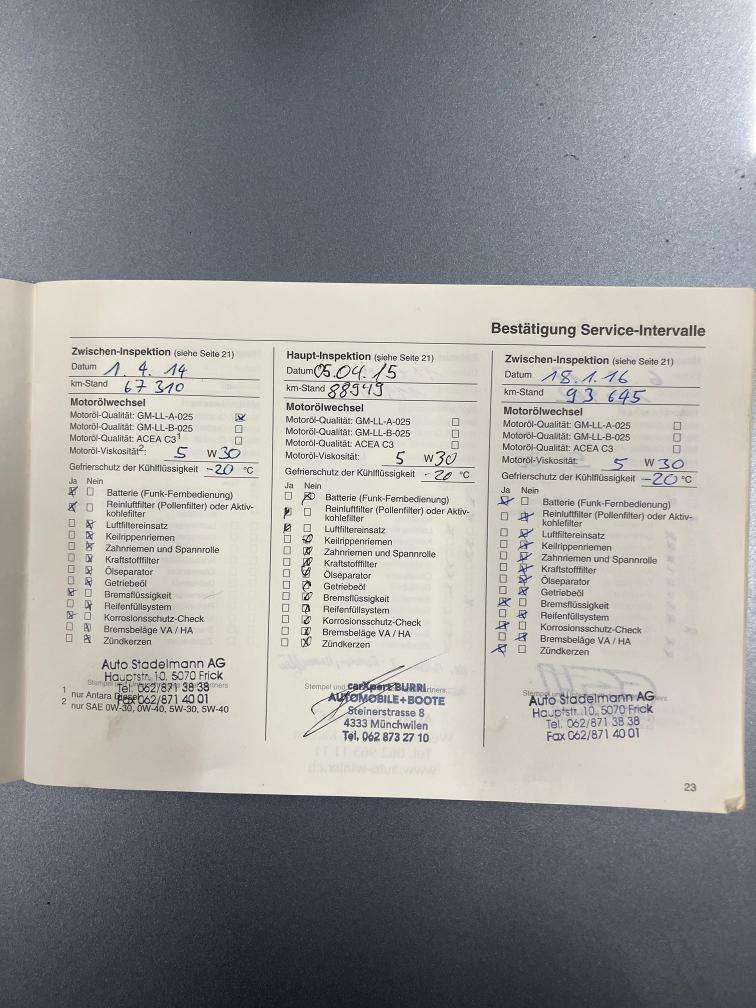 Bestätigung Service-Intervalle
Zwischen-Inspektion (siehe Seite 21)
Datum 1. 4. 14
km-Stand 67 310
Motorölwechsel
Motoröl-Qualität: GM-LL-A-025
Motoröl-Qualität: GM-LL-B-025
Motoröl-Qualität: ACEA C3¹
Motoröl-Viskosität²: 5 W 30
Gefrierschutz der Kühlflüssigkeit -20 °C
Ja Nein
Batterie (Funk-Fernbedienung)
Reinluftfilter (Pollenfilter) oder Aktiv-
kohlefilter
Luftfiltereinsatz
Keilrippenriemen
Zahnriemen und Spannrolle
Kraftstofffilter
Ölseparator
Getriebeöl
Bremsflüssigkeit
Reifenfüllsystem
Korrosionsschutz-Check
Bremsbeläge VA / HA
Zündkerzen
Auto Stadelmann AG
Hauptstr. 10, 5070 Frick
Tel. 062/871 38 38
Fax 062/871 40 01
1 nur Antara Diesel
2 nur SAE 0W-30, 0W-40, 5W-30, 5W-40
Haupt-Inspektion (siehe Seite 21)
Datum 05.04.15
km-Stand 88949
Motorölwechsel
Motoröl-Qualität: GM-LL-A-025
Motoröl-Qualität: GM-LL-B-025
Motoröl-Qualität: ACEA C3
Motoröl-Viskosität: 5 W 30
Gefrierschutz der Kühlflüssigkeit -20 °C
Ja Nein
Batterie (Funk-Fernbedienung)
Reinluftfilter (Pollenfilter) oder Aktiv-
kohlefilter
Luftfiltereinsatz
Keilrippenriemen
Zahnriemen und Spannrolle
Kraftstofffilter
Ölseparator
Getriebeöl
Bremsflüssigkeit
Reifenfüllsystem
Korrosionsschutz-Check
Bremsbeläge VA / HA
Zündkerzen
Stempel und
carXpert BURRI
AUTOMOBILE+BOOTE
Steinerstrasse 8
4333 Münchwilen
Tel. 062 873 27 10
Zwischen-Inspektion (siehe Seite 21)
Datum 18.1.16
km-Stand 93 645
Motorölwechsel
Motoröl-Qualität: GM-LL-A-025
Motoröl-Qualität: GM-LL-B-025
Motoröl-Qualität: ACEA C3
Motoröl-Viskosität: 5 W 30
Gefrierschutz der Kühlflüssigkeit -20 °C
Ja Nein
Batterie (Funk-Fernbedienung)
Reinluftfilter (Pollenfilter) oder Aktiv-
kohlefilter
Luftfiltereinsatz
Keilrippenriemen
Zahnriemen und Spannrolle
Kraftstofffilter
Ölseparator
Getriebeöl
Bremsflüssigkeit
Reifenfüllsystem
Korrosionsschutz-Check
Bremsbeläge VA / HA
Zündkerzen
Auto Stadelmann AG
Hauptstr. 10, 5070 Frick
Tel. 062/871 38 38
Fax 062/871 40 01
23